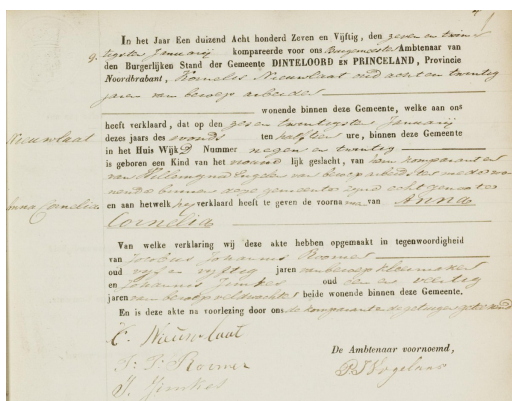 In het Jaar Een duizend Acht honderd Zeven en Vijftig, den zeven en twin
tigsten Januarij kompareerde voor ons Burgemeester Ambtenaar van
den Burgerlijken Stand der Gemeente DINTELOORD EN PRINCELAND, Provincie
Noordbrabant, Kornelis Nieuwlaat oud acht en twintig
jaren van beroep arbeider
wonende binnen deze Gemeente, welke aan ons
heeft verklaard, dat op den zeven twintigsten Januarij
dezes jaars des avonds ten half tien ure, binnen deze Gemeente
Nieuwlaat
in het Huis Wijk D Nummer negen en twintig
is geboren een Kind van het vrouwelijk geslacht, van hem komparant en
van beroep arbeidster mede wo
nende binnen deze gemeente zijnde echtgenooten
Anna Cornelia
en aan hetwelk hij verklaard heeft te geven de voorna men van Anna
Cornelia
Van welke verklaring wij deze akte hebben opgemaakt in tegenwoordigheid
van Jacobus Johannis Roomer
oud vijf en vijftig jaren van beroep kleermaker
en Johannis Jimkes oud een en veertig
jaren van beroep veldwachter beide wonende binnen deze Gemeente.
En is deze akte na voorlezing door ons de komparant en de getuigen geteekend
C. Nieuwlaat
J: J: Romer
J. Jimkes
De Ambtenaar voornoemd,
Vogelaar